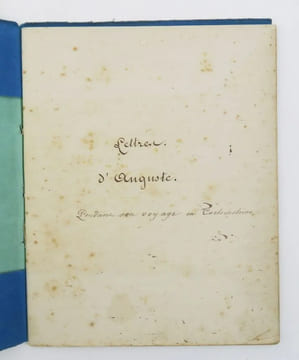 Lettres.
d'Auguste.
Pendant son voyage en